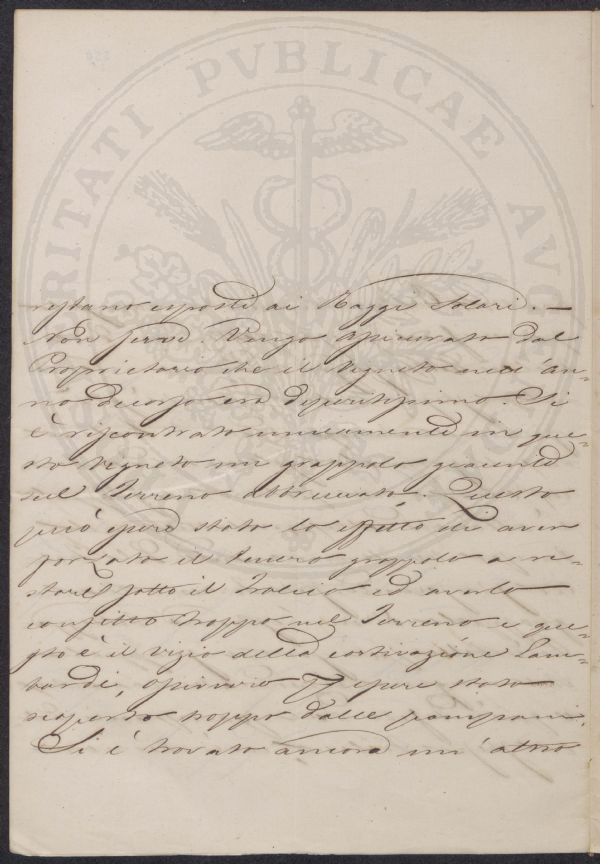 restano esposti ai Raggi Solari. —
Non Serve. Vengo assicurato dal
Proprietario che il Vigneto nell'an-
no decorso era disperatissimo. Si
è riscontrato unicamente in que-
sto Vigneto un grappolo giacente
sul Terreno abbruciato. Questo
può essere stato lo effetto di aver
forzato il tenero grappolo a re-
stare sotto il Tralcio ed averlo
confitto troppo nel Terreno e que-
sto è il vizio della coltivazione Lom-
barda, oppure essere stato
scoperto troppo dalle pampani.
Si è trovato ancora un'altro
PVBLICAE